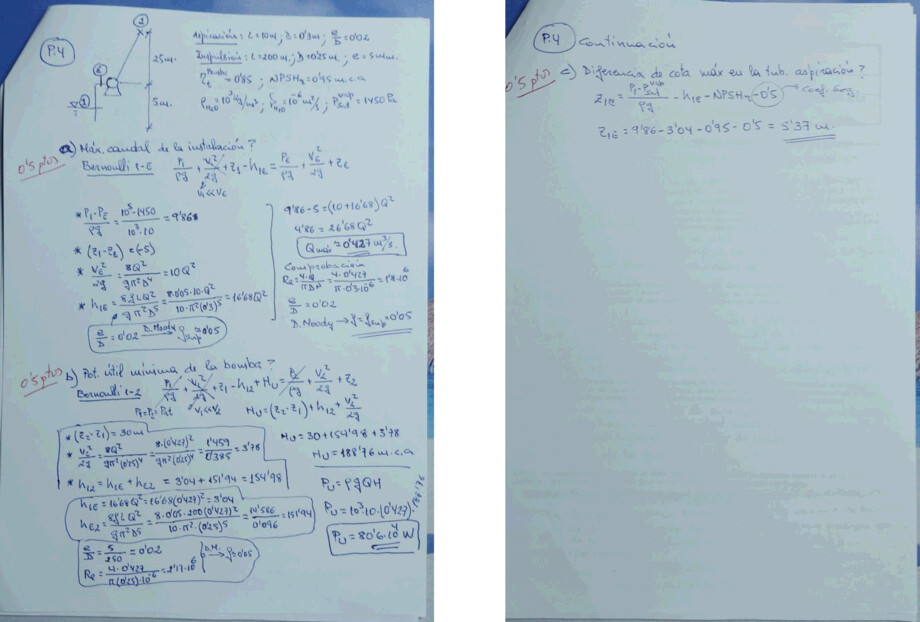 P.4
2
25m.
5m.
E
1
Aspiración: L=10m; D=0'3m; e/D=0'02
Impulsión: L=200m; D=0'25m; e=5mm.
=0'85; NPSHr=0'95 m.c.a
ρH2O=10³ kg/m³; H2O=10⁻⁶ m²/s; Psat^vap=1450 Pa
a) Máx. caudal de la instalación?
0'5 ptos
Bernoulli 1-E P1/ρg + V1²/2g + z1 - h1E = PE/ρg + VE²/2g + zE
V1<<VE
* P1-PE/ρg = 10⁵-1450/10³·10 = 9'86
* (z1-zE) = (-5)
* VE²/2g = 8Q²/gπ²D⁴ = 10Q²
* h1E = 8fLQ²/gπ²D⁵ = 8·0'05·10·Q²/10·π²(0'3)⁵ = 16'68Q²
e/D = 0'02 D.Moody → fsup = 0'05
9'86-5=(10+16'68)Q²
4'86 = 26'68Q²
Qmáx = 0'427 m³/s.
Comprobación
Re = 4·Q/πDν = 4·0'427/π·0'3·10⁻⁶ = 1'8·10⁶
e/D = 0'02
D. Moody → f = fsup = 0'05
b) Pot. útil mínima de la bomba?
0'5 ptos
Bernoulli 1-2 P1/ρg + V1²/2g + z1 - h12 + Hu = P2/ρg + V2²/2g + z2
P1=P2=Pat V1<<V2 Hu=(z2-z1)+h12+V2²/2g
* (z2-z1) = 30m
* V2²/2g = 8Q²/gπ²(0'25)⁴ = 8·(0'427)²/gπ²(0'25)⁴ = 1'459/0'385 = 3'78
* h12 = h1E + hE2 = 3'04 + 151'94 = 154'98
h1E = 16'68Q² = 16'68(0'427)² = 3'04
hE2 = 8fLQ²/gπ²D⁵ = 8·0'05·200(0'427)²/10·π²·(0'25)⁵ = 14'586/0'096 = 151'94
e/D = 5/250 = 0'02
Re = 4·0'427/π(0'25)·10⁻⁶ = 2'17·10⁶
D.M. → f=0'05
Hu = 30+154'98+3'78
Hu = 188'76 m.c.a
Pu = ρgQH
Pu = 10³·10·(0'427)·188'76
Pu = 80'6·10⁴ W
P.4 Continuación
0'5 ptos
c) Diferencia de cota máx en la tub. aspiración?
z1E = P1-Psat^vap/ρg - h1E - NPSHr - 0'5 → Coef. seg.
z1E = 9'86-3'04-0'95-0'5 = 5'37 m.